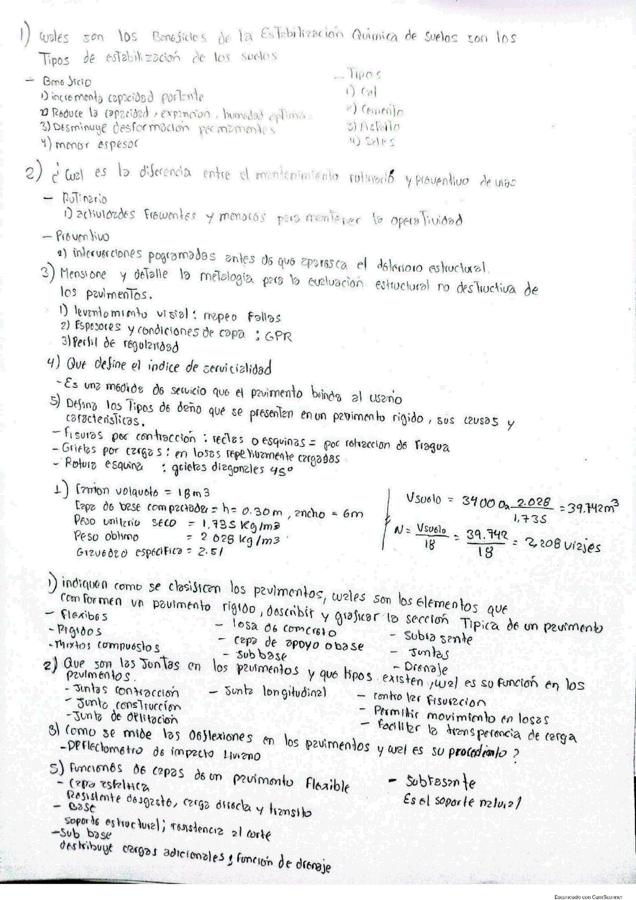 1) cuales son los Beneficios de la Estabilización Quimica de suelos son los
Tipos de estabilización de los suelos
- Beneficio
1) incrementa capacidad portante
2) Reduce la capacidad, expancion, humedad optima
3) Desminuye desformación permamentes
4) menor espesor
- Tipos
1) Cal
2) Cemento
3) Asfalto
4) Sales
2) ¿Cual es la diferencia entre el mantenimiento rutinario y preventivo de
- Rutinario
1) actividades frecuentes y menores para mantener la operatividad
- Preventivo
2) intervenciones pogramadas antes de que aparesca el deterioro estructural.
3) Mensione y detalle la metologia para la evaluacion estructural no destructiva de
los pavimentos.
1) levantamiento visial: mapeo fallas
2) Espesores y condiciones de capa : GPR
3) Perfil de regularidad
4) Que define el indice de servicialidad
- Es una medida de servicio que el pavimento brinda al usario
5) Defina los Tipos de daño que se presenten en un pavimento rigido, sus causas y
características.
- fisuras por contracción : rectas o esquinas = por retraccion de fragua
- Grietas por cargas : en losas repetivamente cargadas
- Rotura esquina : grietas diagonales 45°
1) Camion volquete = 18 m3
Capa de base compactada = h = 0.30 m, ancho = 6m
Peso unitario seco = 1.735 Kg/m3
Peso obtimo = 2 028 kg/m3
Gravedad especifica = 2.51
Vsuelo = 34000 2.028 / 1.735 = 39.742 m³
N = Vsuelo / 18 = 39.742 / 18 = 2,208 viajes
1) indiquen como se clasifican los pavimentos, cuales son los elementos que
conformen un pavimento rigido, describir y graficar la sección Tipica de un pavimento
- flexibles
- Rigidos
- Mixtos compuestos
- losa de concreto
- capa de apoyo o base
- sub base
- Subra sante
- Juntas
- Drenaje
2) Que son las Juntas en los pavimentos y que tipos existen, cual es su función en los
pavimentos.
- Juntas contracción
- Junta construcción
- Junta de dilitación
- Junta longitudinal
- controlar fisuracion
- Permitir movimiento en losas
- faciliter la transperencia de carga
3) Como se mide las Deflexiones en los pavimentos y cual es su procediento?
- Deflectometro de impacto Liviano
5) Funciones de capas de un pavimento flexible
- Capa asfaltica
Resistente desgaste, carga directa y transito
- Base
soporte estructural; resistencia al corte
- Sub base
destribuye cargas adicionales y función de drenaje
- Subrasante
Es el soporte natural
Escaneado con CamScanner